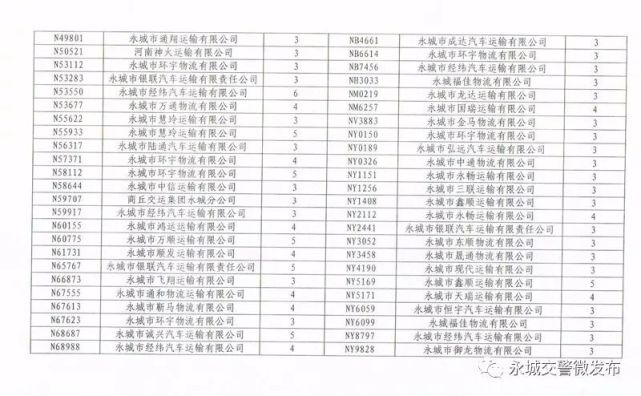 N49801 永城市通翔运输有限公司 3 NB4661 永城市成达汽车运输有限公司 3
N50521 河南神火运输有限公司 3 NB6614 永城市环宇物流有限公司 3
N53112 永城市环宇物流有限公司 3 NB7456 永城市经纬汽车运输有限公司 3
N53283 永城市银联汽车运输有限责任公司 3 NH3033 永城福佳物流有限公司 3
N53550 永城市经纬汽车运输有限公司 6 NM0219 永城市龙达运输有限公司 3
N53677 永城市万通物流有限公司 4 NM6257 永城市国瑞运输有限公司 4
N55622 永城市慧玲运输有限公司 3 NV3883 永城市金马物流有限公司 3
N55933 永城市慧玲运输有限公司 5 NY0150 永城市环宇物流有限公司 3
N56317 永城市陆通汽车运输有限公司 3 NY0189 永城市弘远汽车运输有限公司 3
N57371 永城市环宇物流有限公司 4 NY0326 永城市中通物流有限公司 3
N58112 永城市环宇物流有限公司 5 NY1151 永城市永畅运输有限公司 3
N58644 永城市中信运输有限公司 3 NY1256 永城市三联运输有限公司 3
N59707 商丘交运集团永城分公司 3 NY1408 永城市鑫顺运输有限公司 3
N59917 永城市经纬汽车运输有限公司 3 NY2112 永城市永畅运输有限公司 4
N60155 永城市鸿运运输有限公司 4 NY2441 永城市银联汽车运输有限责任公司 3
N60775 永城市万顺运输有限公司 5 NY3052 永城市东顺物流有限公司 3
N61731 永城市顺发运输有限公司 4 NY3458 永城市晟通物流有限公司 3
N65767 永城市银联汽车运输有限责任公司 5 NY4190 永城市现代运输有限公司 3
N66873 永城市飞翔运输有限公司 3 NY5169 永城市鑫顺运输有限公司 5
N67555 永城市通和物流运输有限公司 4 NY5171 永城市天瑞运输有限公司 4
N67613 永城市靳马物流有限公司 4 NY6059 永城市恒宇汽车运输有限公司 3
N67623 永城市环宇物流有限公司 3 NY6099 永城福佳物流有限公司 3
N68687 永城市诚兴汽车运输有限公司 5 NY8797 永城市经纬汽车运输有限公司 3
N68988 永城市经纬汽车运输有限公司 4 NY9828 永城市御龙物流有限公司 3
永城交警微发布